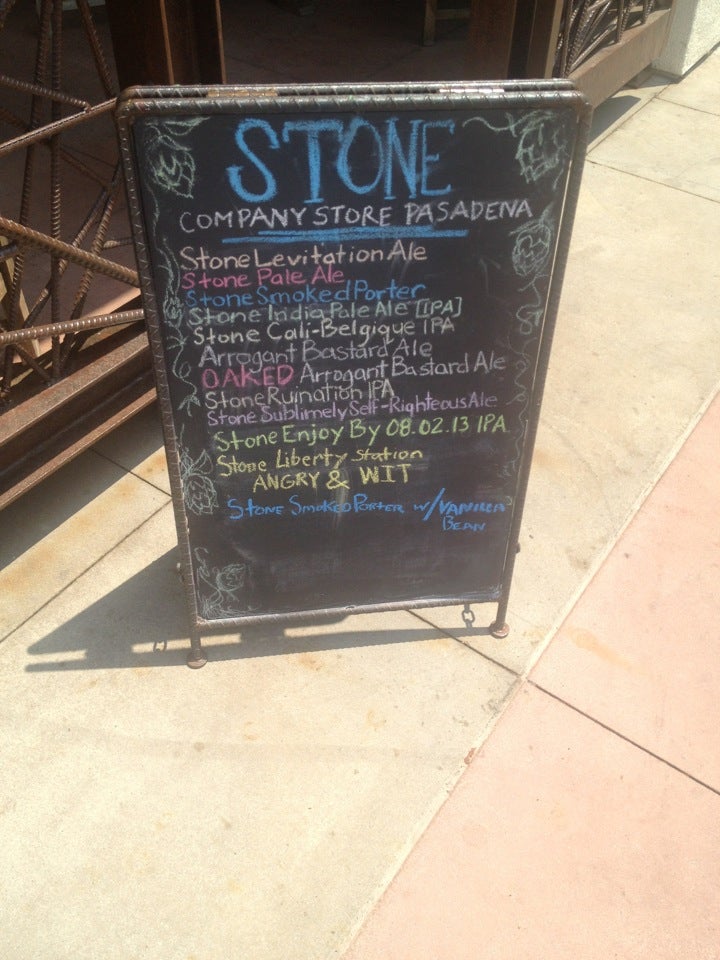 STONE
COMPANY STORE PASADENA
Stone Levitation Ale
Stone Pale Ale
Stone Smoked Porter
Stone India Pale Ale [IPA]
Stone Cali-Belgique IPA
Arrogant Bastard Ale
OAKED Arrogant Bastard Ale
Stone Ruination IPA
Stone Sublimely Self-Righteous Ale
Stone Enjoy By 08.02.13 IPA
Stone Liberty Station
ANGRY & WIT
STONE SMOKED PORTER W/VANILLA
BEAN